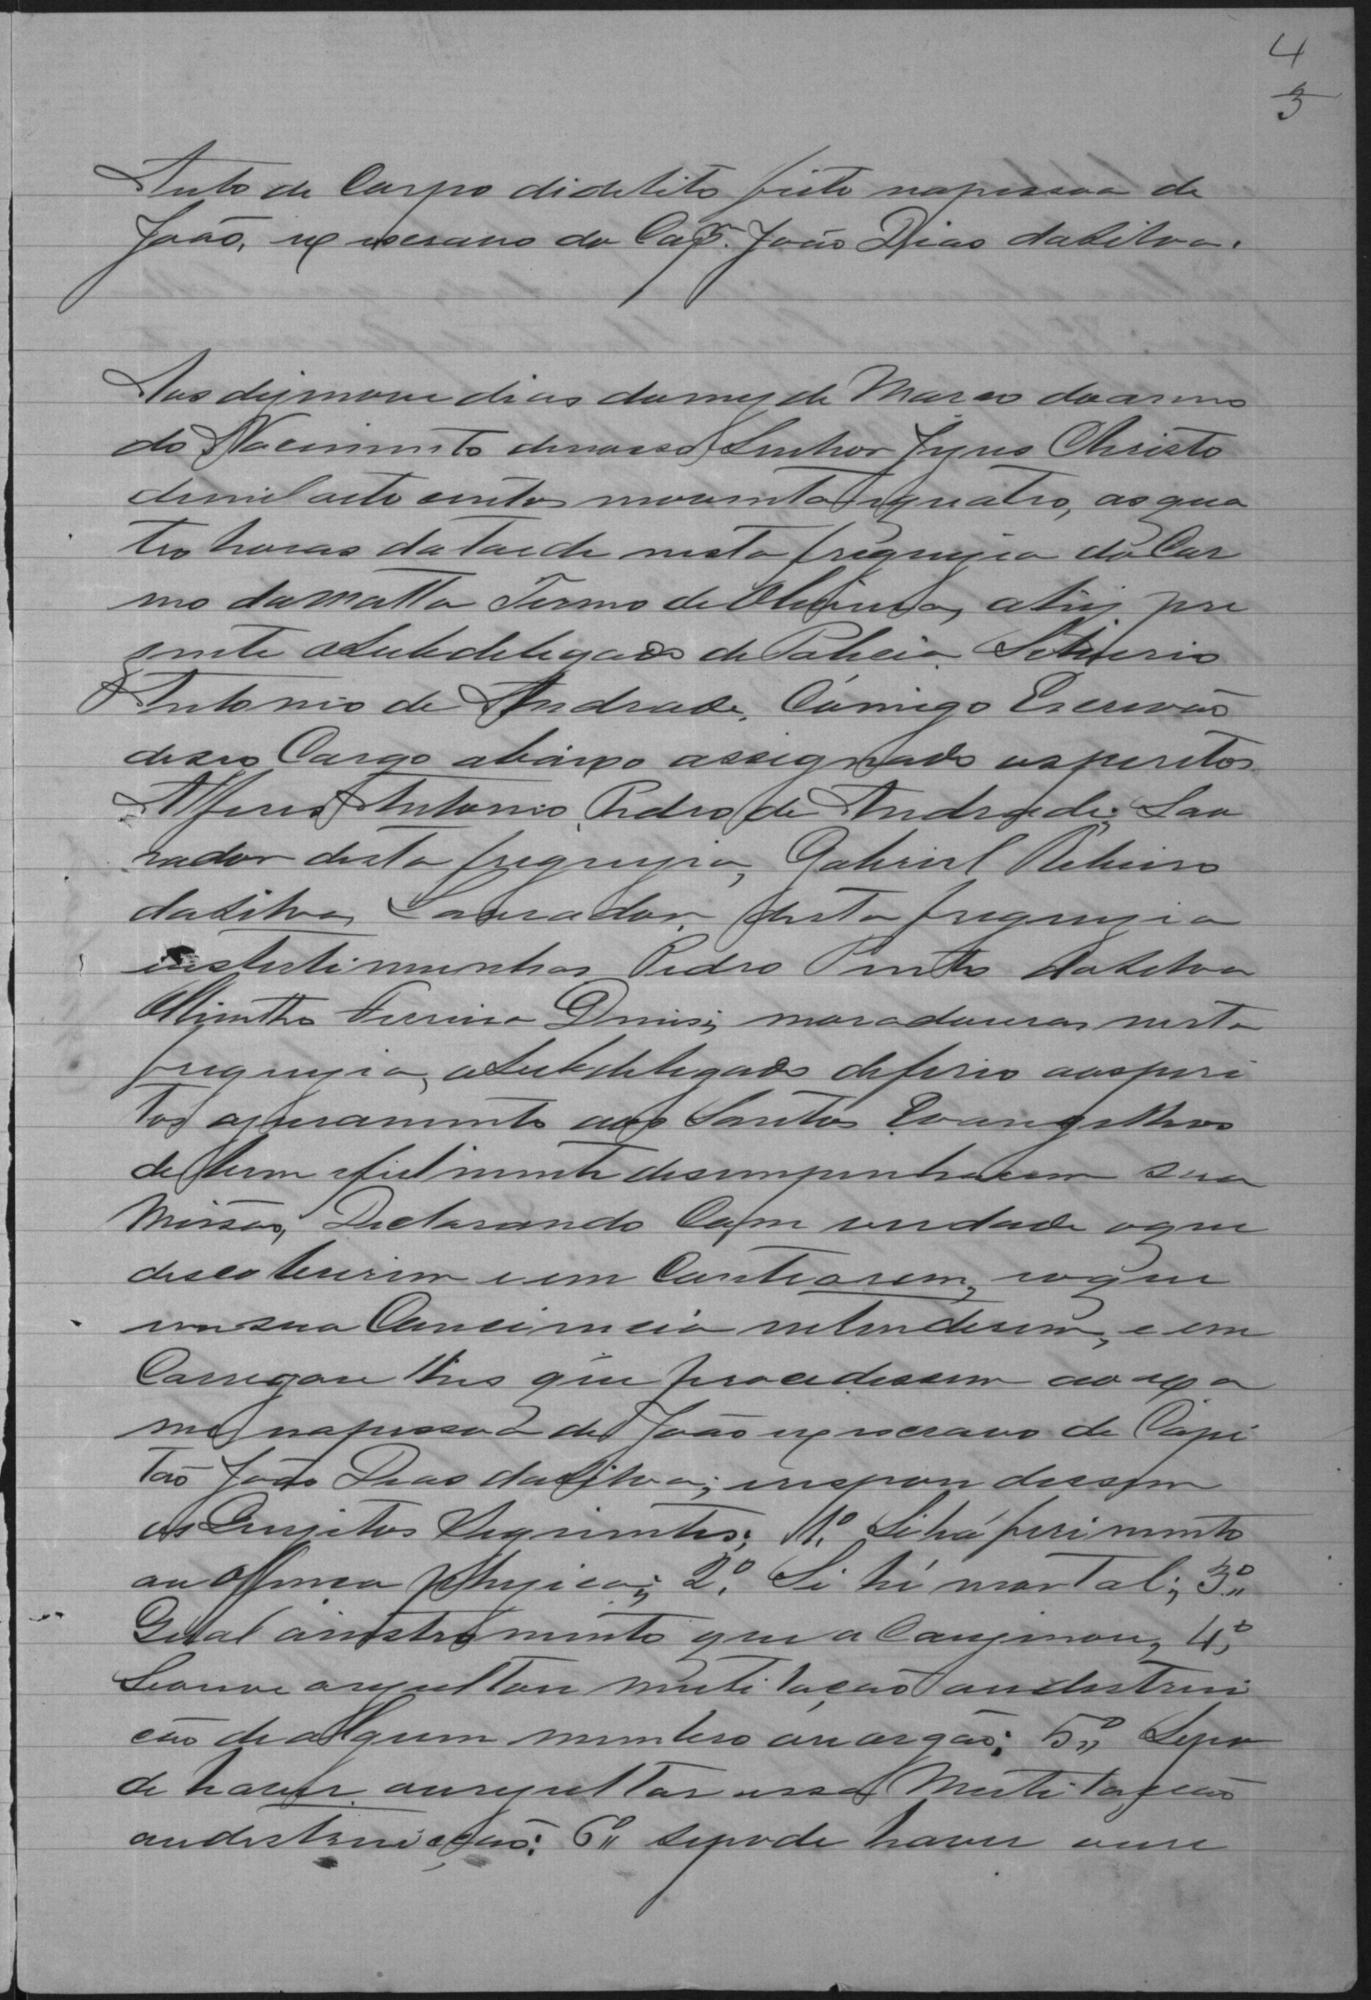 4
3
Auto de Corpo didelito feito napessoa de
João, ex escravo do Capm. João Dias daSilva.
Aos dezenove dias domez de Março doanno
do Nacimento denosso Senhor Jezus Christo
demil oito centos noventa e quatro, as qua
tro horas da tarde nesta freguezia do Car
mo da Matta Termo de Oliveira, ahi pre
zente o Subdelegado de Policia
Antonio de Andrade, Cómigo Escrivão
deseo Cargo abaixo assignado os peritos
Alferes Antonio Pedro de Andrade; Lav
rador desta freguezia, Gabriel Ribeiro
daSilva, Lavrador, desta freguezia
e as testimunhas Pedro Pinto daSilva
Olimtho Ferreira Diniz; moradores nesta
freguezia, o Subdelegado deferio aos peri
tos o juramento aos Santos Evangelhos
de bem e fielmente desempenharem sua
Missão, Declarando Com verdade oque
descobrirem e em Contrarem, e o que
em sua Conciencia entenderem, e em
Carregou lhes que procedessem ao exa
me napessoa de João ex escravo de Capi
tão João Dias daSilva; e respondessem
os Quezitos Seguintes; 1º Si há ferimento
ou offença phyzica; 2º. Si hé mortal; 3º
Qual o instromento que o Cauzinou, 4º
Se ouve ou rezultou mutilação ou destrui
ção de algum membro ou orgão; 5º Se po
de haver ou rezultar essa Mutilação
ou destruição; 6º se pode haver ou re